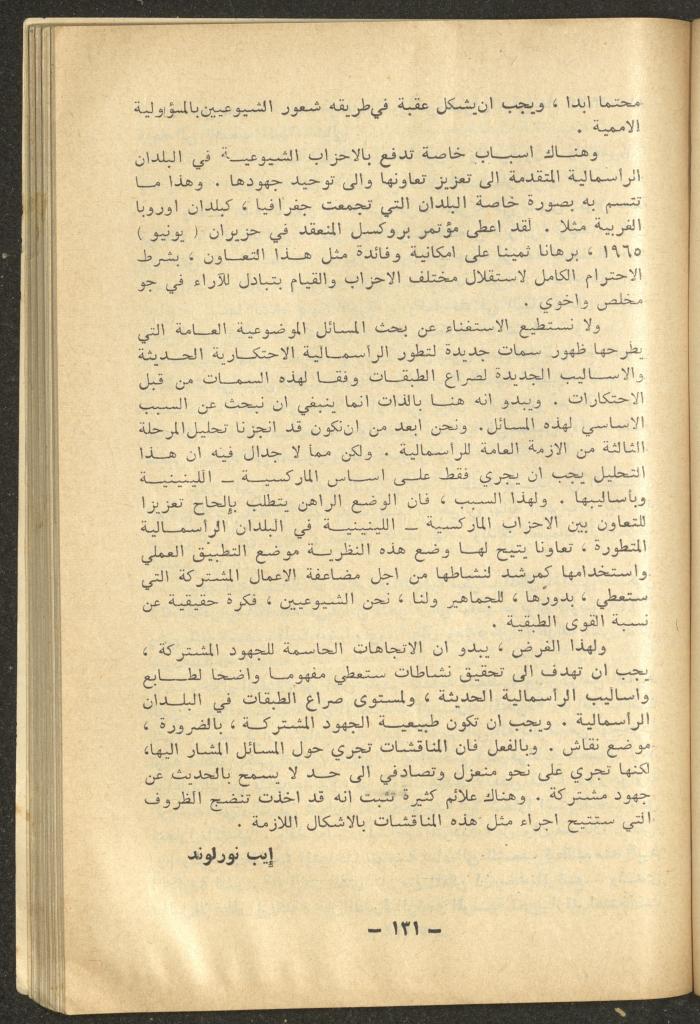 محتما ابدا ، ويجب ان‌يشكل عقبة في‌طريقه شعور الشيوعيين‌بالمسؤولية
الاممية .
وهنــاك اسبــاب خاصة تدفع بالاحزاب الشيوعيــة في البلدان
الرأسمالية المتقدمة الى تعزيز تعاونها والى توحيد جهودها . وهذا مــا
تتسم به بصورة خاصة البلدان التي تجمعت جغرافيا ، كبلدان اوروبا
الغربية مثلا . لقد اعطى مؤتمر بروكسل المنعقد في حزيران ( يونيو )
١٩٦٥ ، برهانا ثمينا على امكانية وفائدة مثل هــذا التعاون ، بشرط
الاحترام الكامل لاستقلال مختلف الاحزاب والقيام بتبادل للآراء في جو
مخلص واخوي .
ولا نستطيع الاستغناء عن بحث المسائل الموضوعية العــامة التي
يطرحها ظهور سمات جديدة لتطور الرأسمالية الاحتكارية الحــديثة
والاســاليب الجديدة لصراع الطبقــات وفقــا لهذه السمــات من قبل
الاحتكارات . ويبدو انه هنــا بالذات انما ينبغي ان نبحث عن السبب
الاساسي لهذه المسائل. ونحن ابعد من ان‌نكون قد انجزنا تحليل‌المرحلة
الثالثة من الازمة العامة للرأسمالية . ولكن مما لا جدال فيه ان هــذا
التحليل يجب ان يجري فقط علــى اســاس الماركسيــة ــ اللينينيــة
وبأساليبها . ولهذا السبب ، فان الوضع الراهن يتطلب بإلحاح تعزيزا
للتعاون بين الاحزاب الماركسية ــ اللينينيــة في البلدان الرأسمــالية
المتطورة ، تعاونا يتيح لهــا وضع هذه النظريــة موضع التطبيق العملي
واستخدامها كمرشد لنشاطها من اجل مضاعفة الاعمال المشتركة التي
ستعطي ، بدورها ، للجماهير ولنا ، نحن الشيوعيين ، فكرة حقيقية عن
نسبة القوى الطبقية .
ولهذا الغرض ، يبدو ان الاتجاهات الحاسمة للجهود المشتركة ،
يجب ان تهدف الى تحقيق نشاطات ستعطي مفهومــا واضحا لطــابع
واساليب الرأسمالية الحديثة ، ولمستوى صراع الطبقات في البلــدان
الرأسمالية . ويجب ان تكون طبيعيــة الجهود المشتركــة ، بالضرورة ،
موضع نقاش . وبالفعل فان المناقشات تجري حول المسائل المشار اليها،
لكنها تجري على نحو منعزل وتصادفي الى حــد لا يسمح بالحديث عن
جهود مشتركة . وهناك علائم كثيرة تثبت انه قد اخذت تنضج الظروف
التي ستتيح اجراء مثل هذه المناقشات بالاشكال اللازمة .
إيب نورلوند
– ١٣١ –